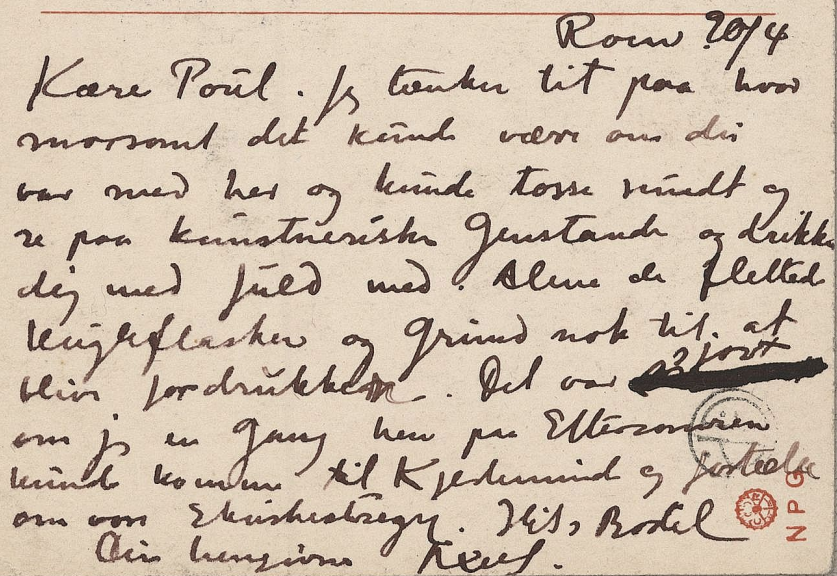 Rom 20/4
Kære Poul. Jeg tænker tit paa hvor
morsomt det kunde være om du
var med her og kunde tosse rundt og
se paa kunstneriske Genstande og drikke
dig med fuld med. Alene de flettede
er Grund nok til at
blive fordrukken. Det var sjovt
om jeg en Gang hen paa Eftersommeren
kunde komme til Kjerteminde og fortælle
om vore . Hils Bodil
Din hengivne
NPG